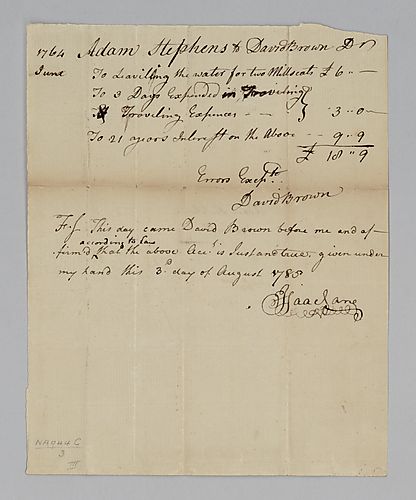 1764 Adam Stephens to David Brown Dr
June To Leavilling the water for two Millseats £ 6 " —
To 3 Days Expended in Traveling
Traveling Expences - - 3 " 0 —
To 21 years Interest on the Above - - 9 " 9
£ 18 " 9
Errors Excepd.
David Brown
This day came David Brown before me and af-
according to Law
firmd ^ that the above Acct. is Just and true, given under
my hand this 3d. day of August 1785
Isaac Lane
NA944C
3
III